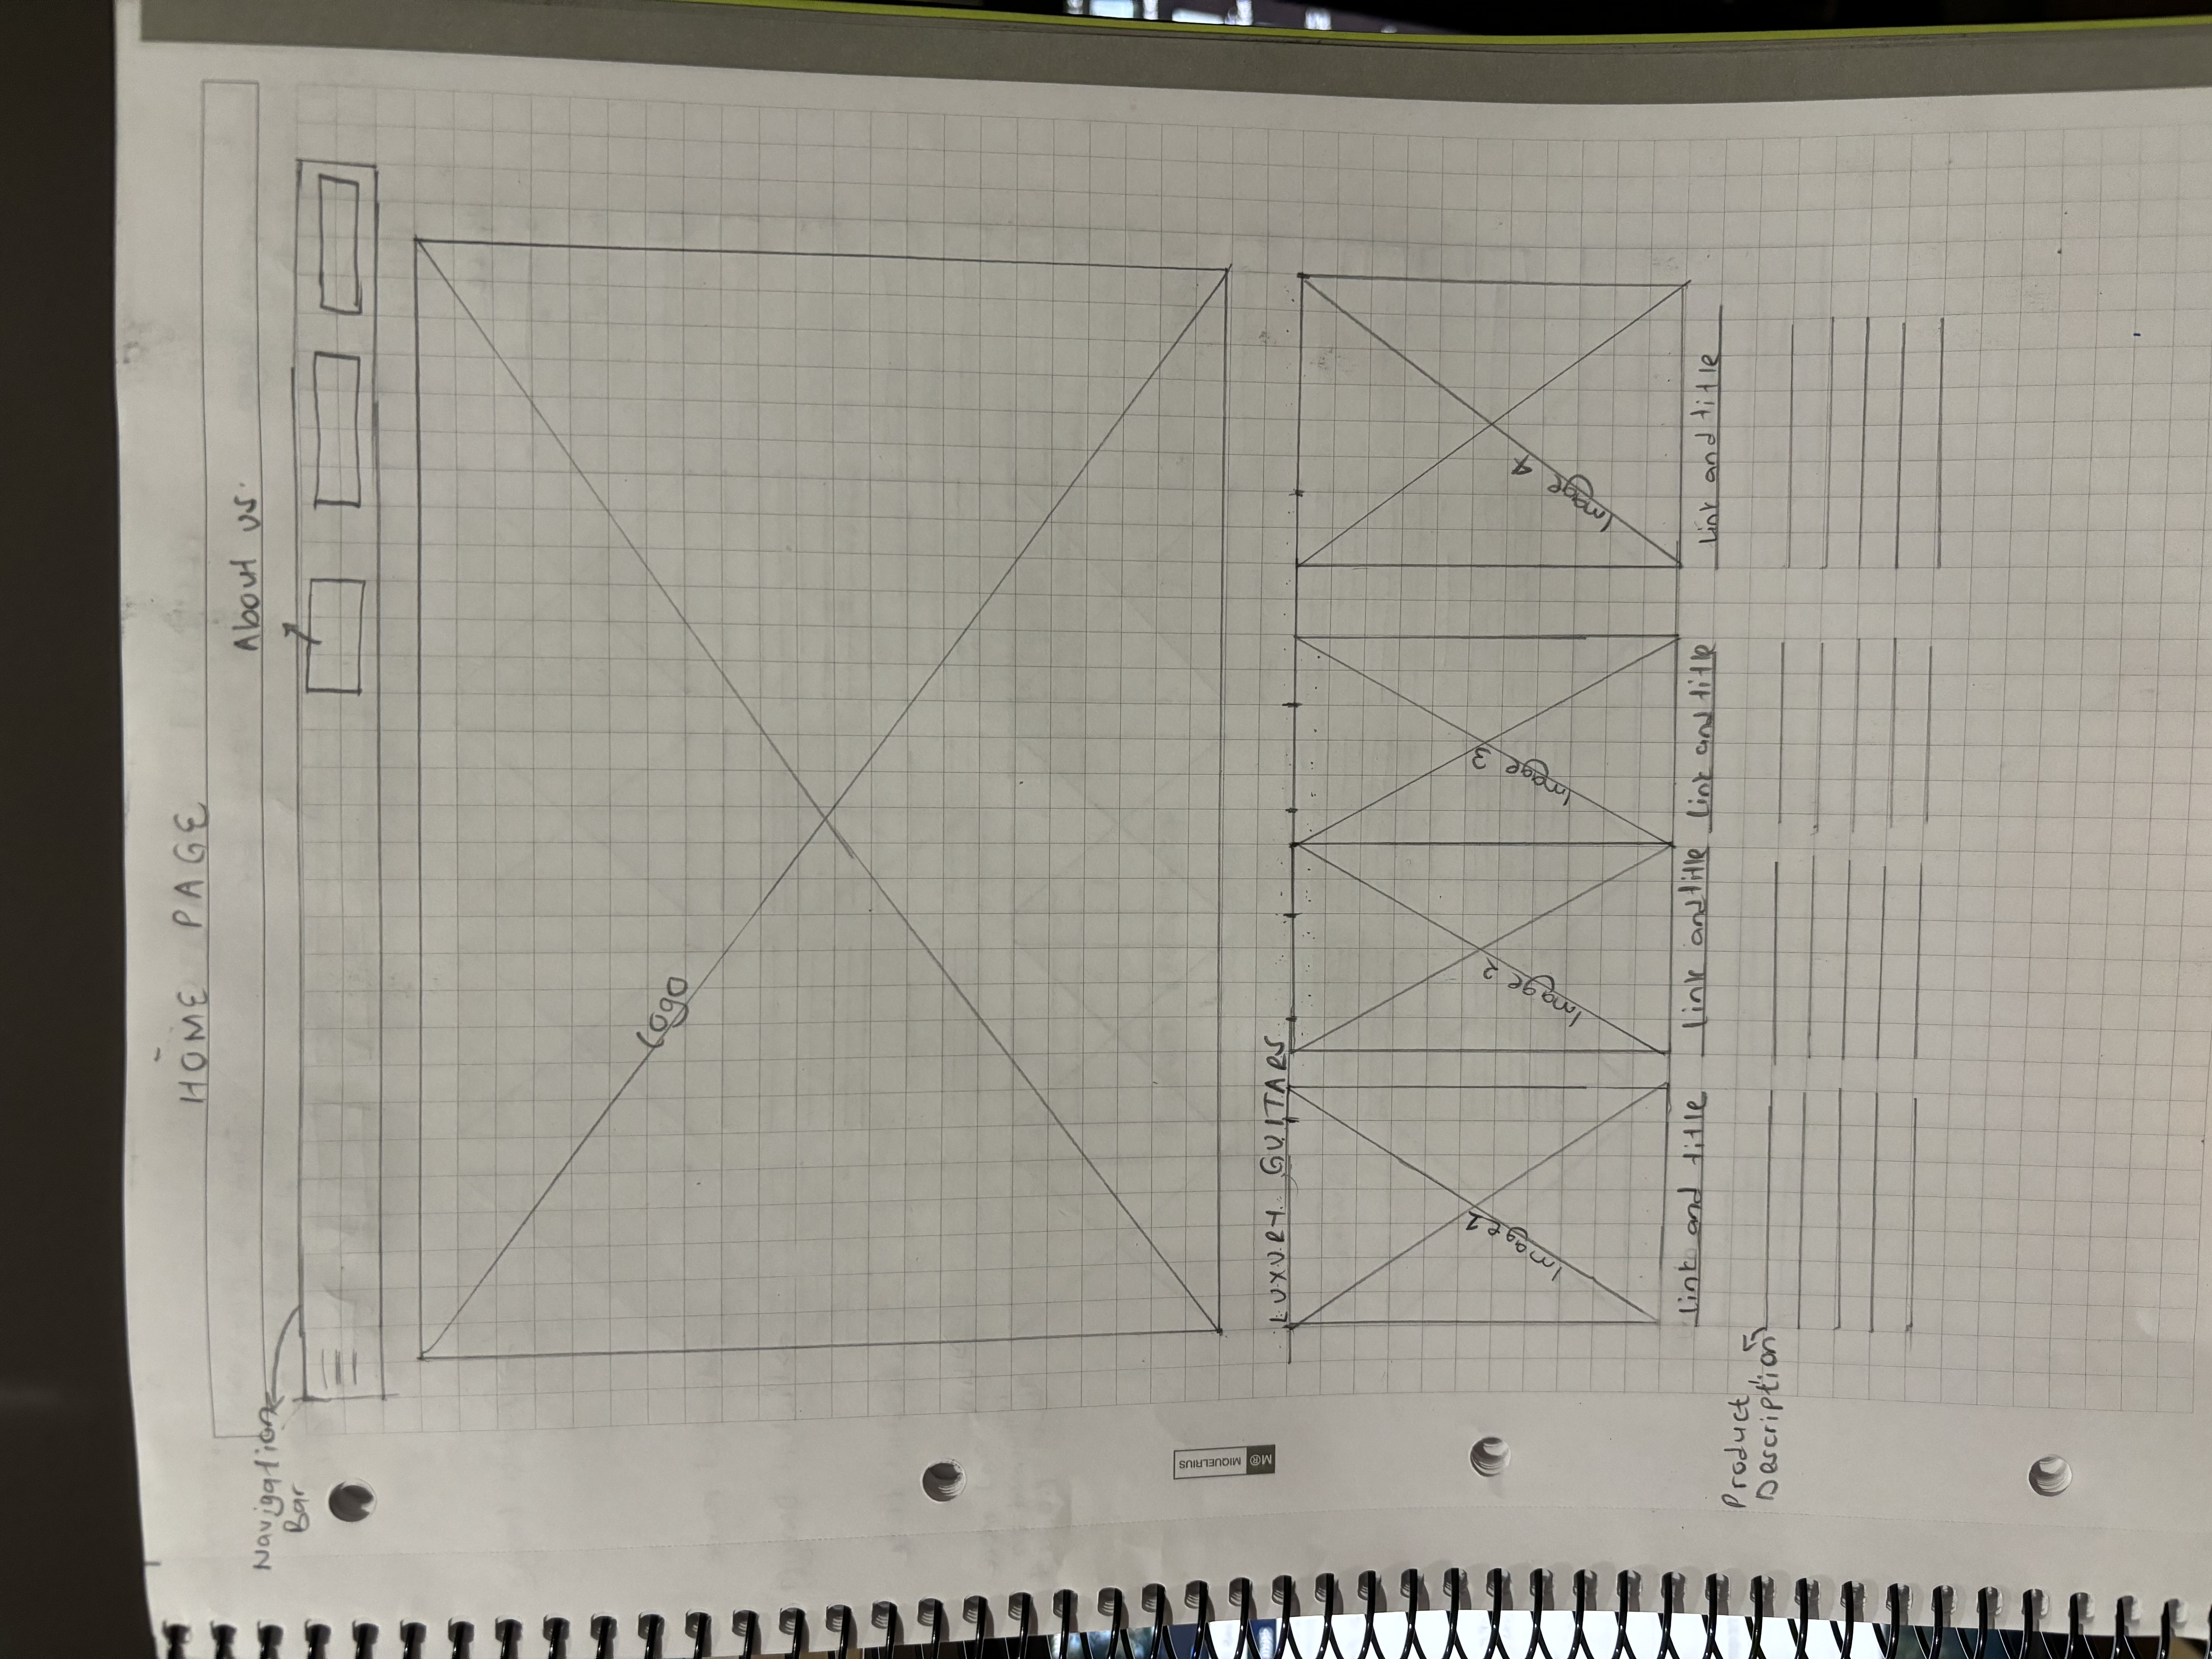 HOME PAGE
About us.
Navigation
Bar
Logo
LUXURY GUITARS
Image 1
Image 2
Image 3
Image 4
link and title
link and title
link and title
link and title
Product
Description
M® MIQUELRIUS